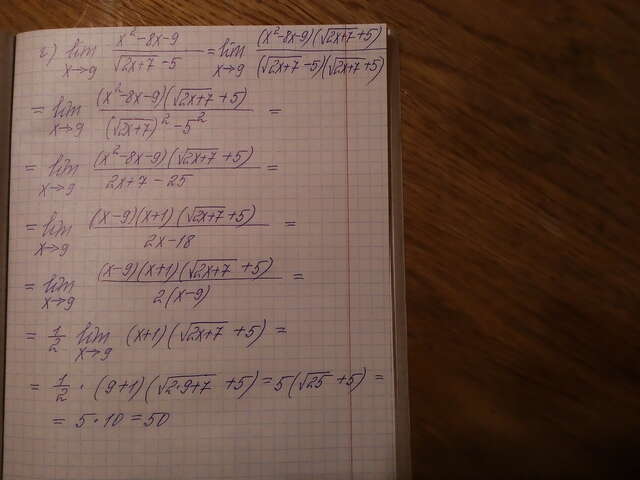 г) lim x→9 (x²-8x-9)/(√(2x+7)-5) = lim x→9 ((x²-8x-9)(√(2x+7)+5))/((√(2x+7)-5)(√(2x+7)+5))
= lim x→9 ((x²-8x-9)(√(2x+7)+5))/((√(2x+7))²-5²) =
= lim x→9 ((x²-8x-9)(√(2x+7)+5))/(2x+7-25) =
= lim x→9 ((x-9)(x+1)(√(2x+7)+5))/(2x-18) =
= lim x→9 ((x-9)(x+1)(√(2x+7)+5))/(2(x-9)) =
= 1/2 lim x→9 (x+1)(√(2x+7)+5) =
= 1/2 · (9+1)(√(2·9+7)+5) = 5(√25+5) =
= 5·10 = 50